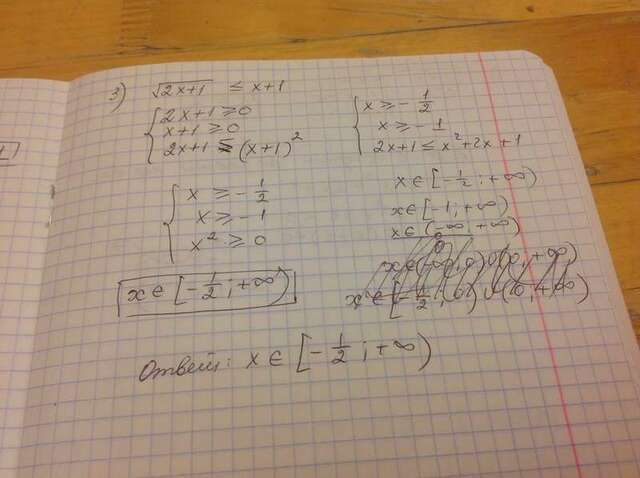 3) √2x+1 ≤ x+1
{ 2x+1 ≥ 0
x+1 ≥ 0
2x+1 ≤ (x+1)²
{ x ≥ -1/2
x ≥ -1
2x+1 ≤ x²+2x+1
{ x ≥ -1/2
x ≥ -1
x² ≥ 0
x ∈ [-1/2; +∞)
x ∈ [-1; +∞)
x ∈ (-∞; +∞)
x ∈ [-1/2; +∞)
Ответ: x ∈ [-1/2; +∞)